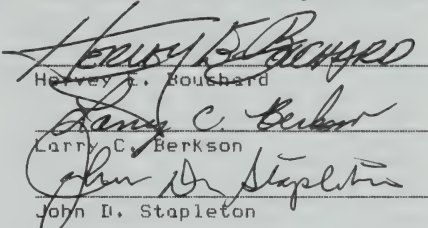 Hervey E. Bouchard
Hervey E. Bouchard
Larry C. Berkson
Larry C. Berkson
John D. Stapleton
John D. Stapleton